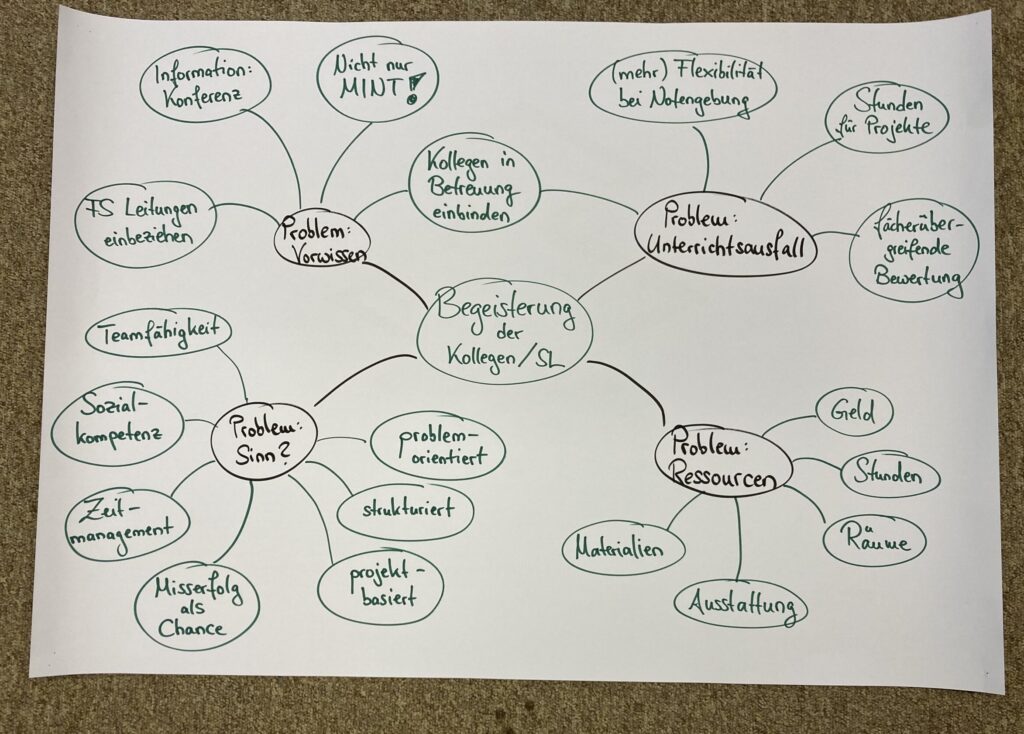 Information:
Konferenz
Nicht nur
MINT!
(mehr) Flexibilität
bei Notengebung
Stunden
für Projekte
Kollegen in
Betreuung
einbinden
FS Leitungen
einbeziehen
Problem:
Vorwissen
Problem:
Unterrichtsausfall
fächerüber-
greifende
Bewertung
Begeisterung
der
Kollegen/SL
Teamfähigkeit
Sozial-
kompetenz
Problem:
Sinn?
problem-
orientiert
Zeit-
management
strukturiert
Misserfolg
als
Chance
projekt-
basiert
Problem:
Ressourcen
Geld
Stunden
Räume
Materialien
Ausstattung